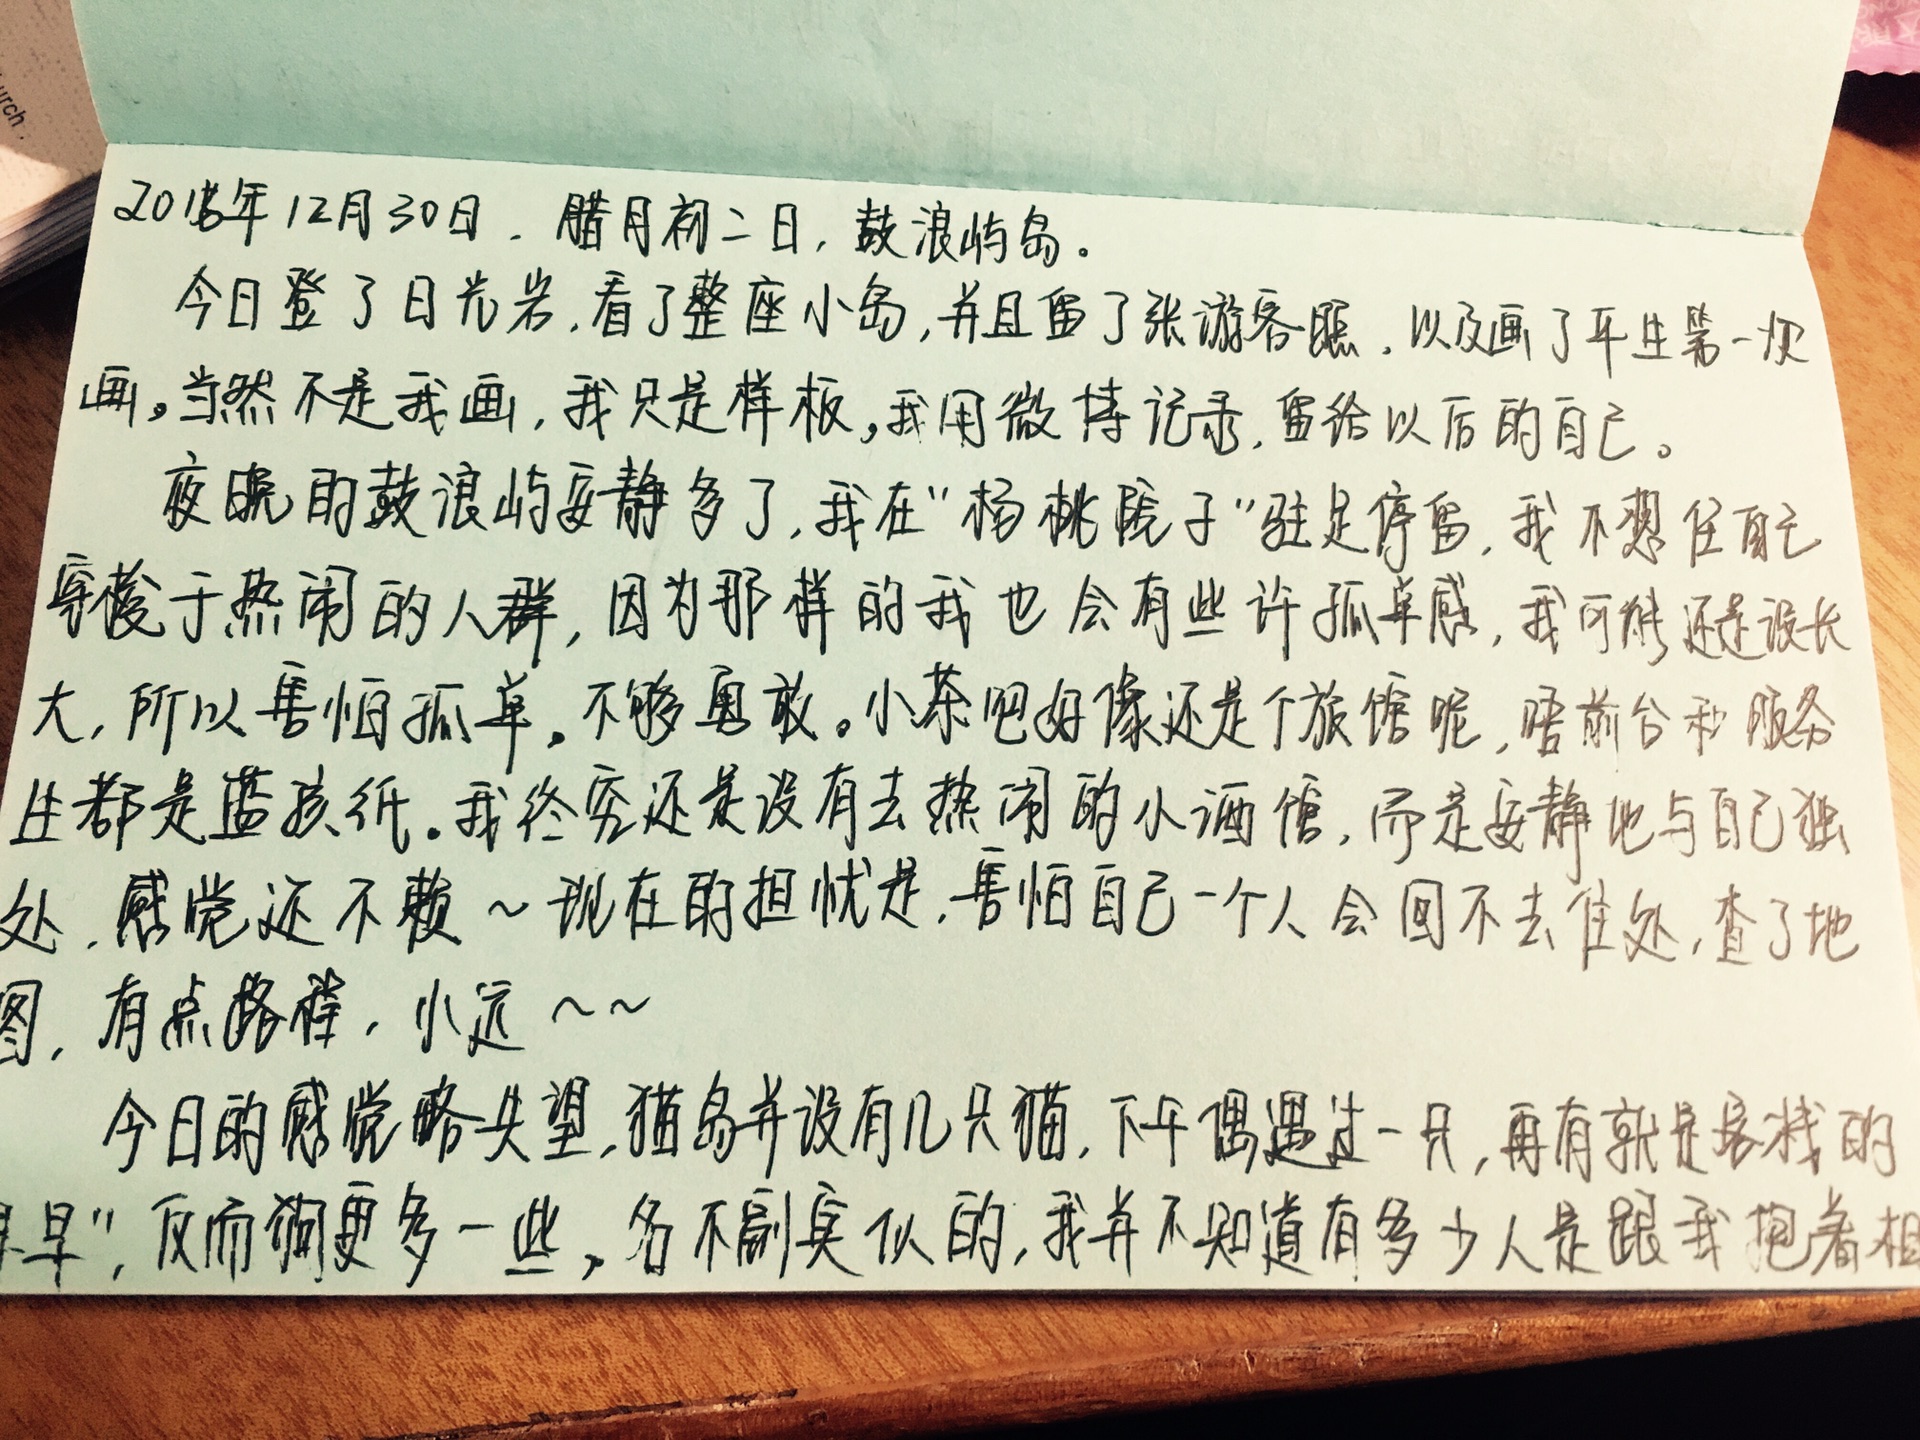 urch.
2016年12月30日.腊月初二日,鼓浪屿岛。
今日登了日光岩,看了整座小岛,并且留了张游客照,以及画了平生第一次
画。当然不是我画,我只是样板。我用微博记录,留给以后的自己。
夜晚的鼓浪屿安静多了,我在“杨桃院子”驻足停留,我不想任自己
穿梭于热闹的人群,因为那样的我也会有些许孤单感,我可能还是没长
大,所以害怕孤单。不够勇敢。小茶吧好像还是个旅馆呢,唔前台和服务
生都是蓝孩纸。我终究还是没有去热闹的小酒馆,而是安静地与自己独
处,感觉还不赖~现在的担忧是,害怕自己一个人会回不去住处,查了地
图,有点路程,小远~~
今日的感觉略失望,猫岛并没有几只猫,下午偶遇过一只,再有就是客栈的
早”,反而狗更多一些。名不副实似的,我并不知道有多少人是跟我抱着相